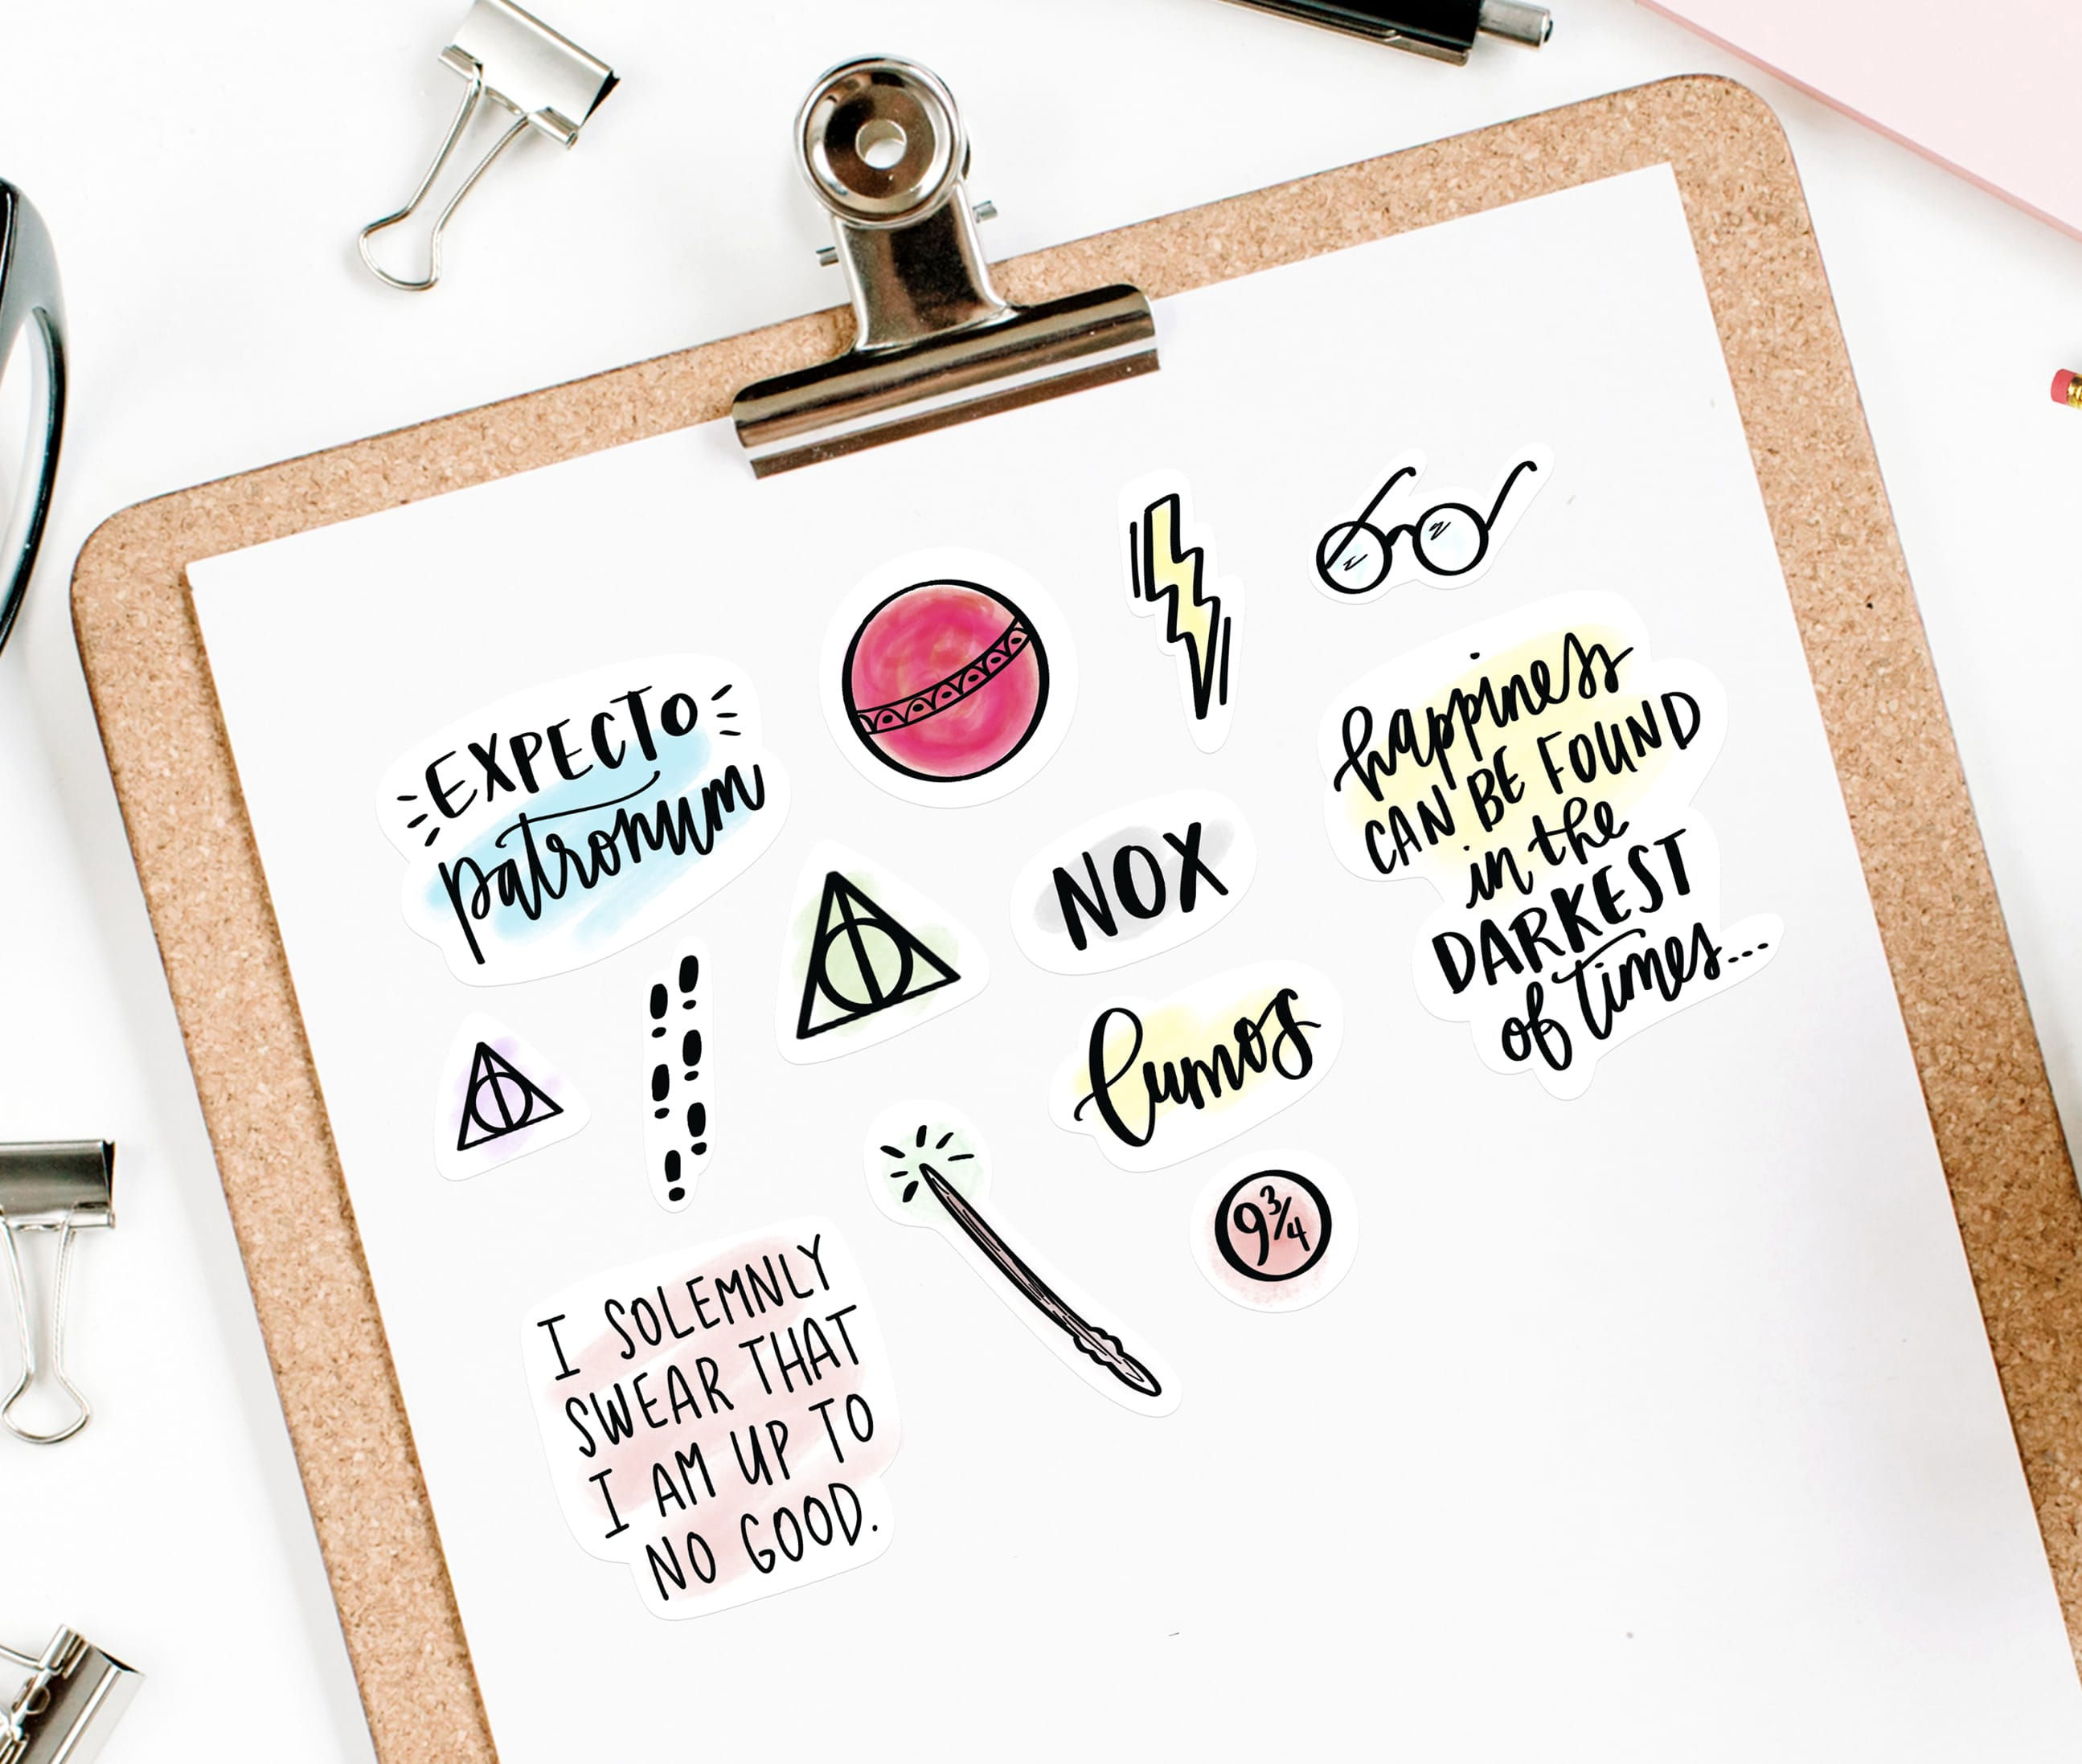 EXPECTO
patronum
happiness
CAN BE FOUND
in the
DARKEST
of times...
NOX
lumos
9¾
I SOLEMNLY
SWEAR THAT
I AM UP TO
NO GOOD.